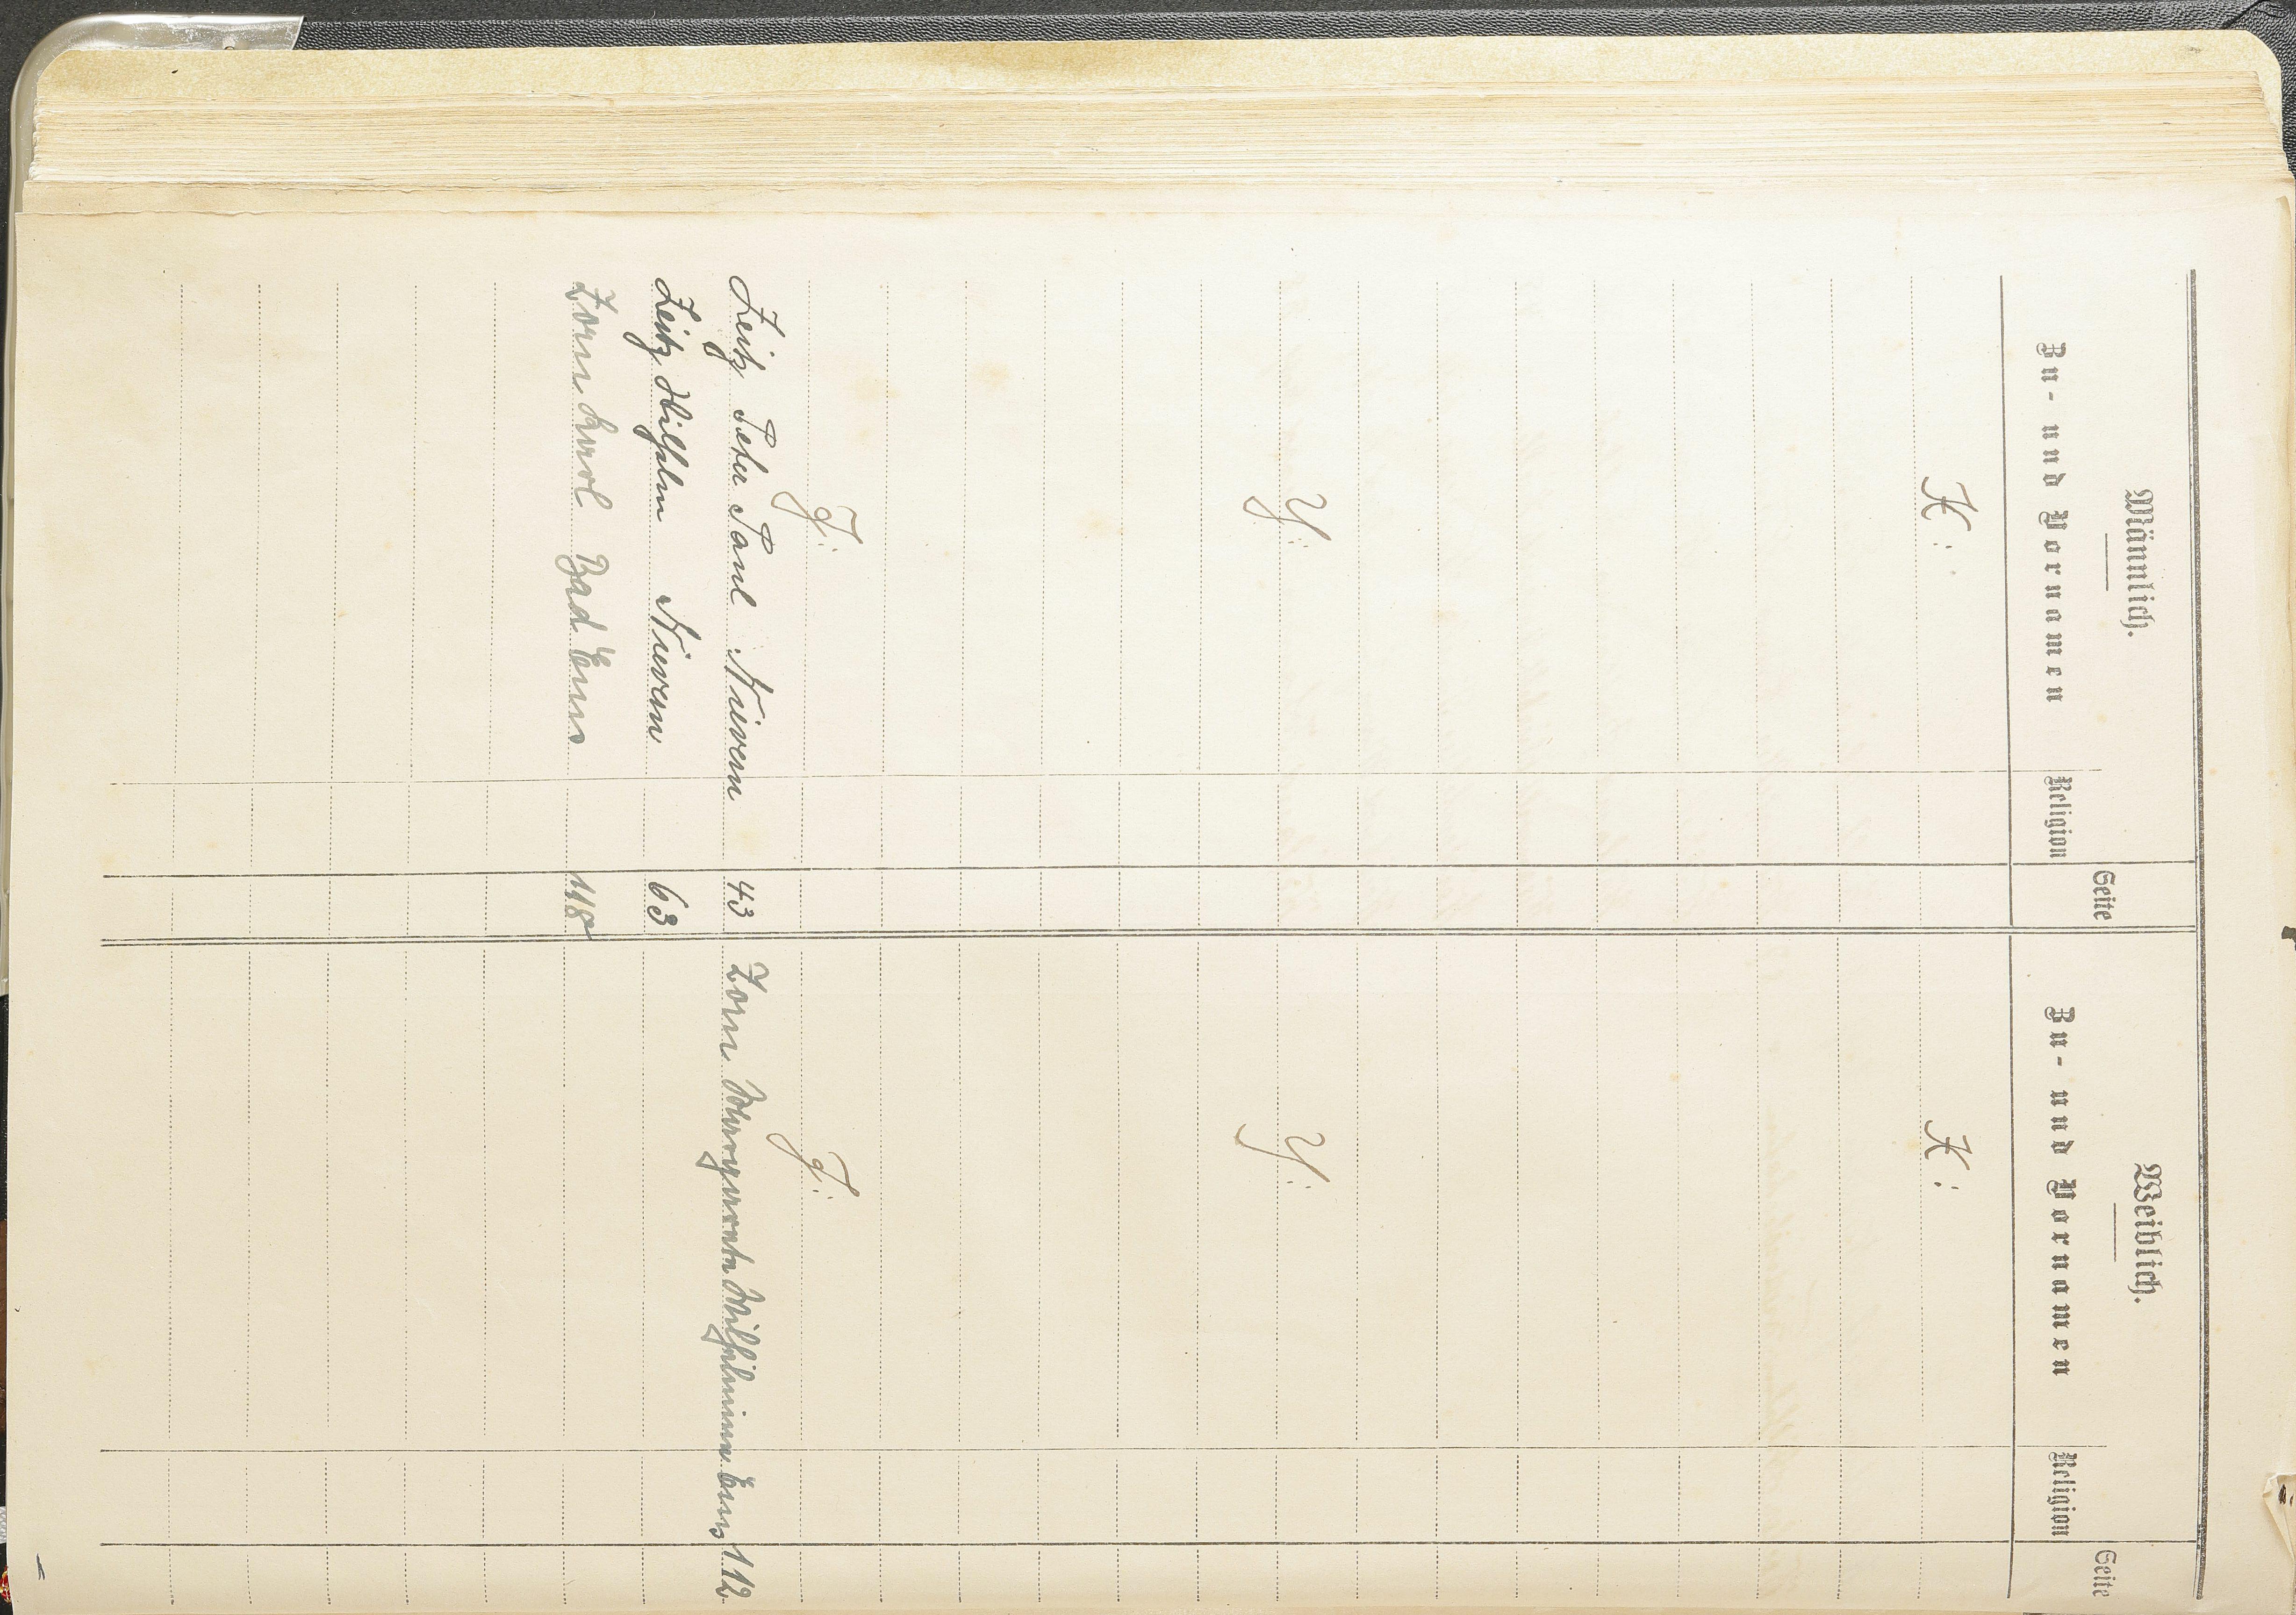 Männlich.
Zu- und Vornamen
Religion
Seite
X:
Y:
Z:
Zeitz Peter Paul Nievern 43
Zeitz Wilhelm Nievern 63
Zorn Karl Bad Ems 118
Weiblich.
Zu- und Vornamen
Religion
Seite
X:
Y:
Z:
Zorn Margareta Wilhelmine Ems 112